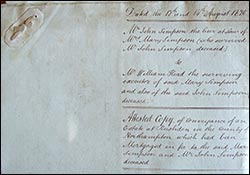 Dated the 13th and 14th August 1870
Mr John Simpson the heir at law of
Mrs Mary Simpson (who survived
Mr John Simpson
deceased)
to
Mr William Read the surviving
executor of said Mary Simpson
and also of the said John Simpson
deceased
Attested Copy of Conveyance of an
Estate at Rushden in the County of
Northampton which had been
Mortgaged in fee to the said Mary
Simpson and Mr John Simpson
deceased